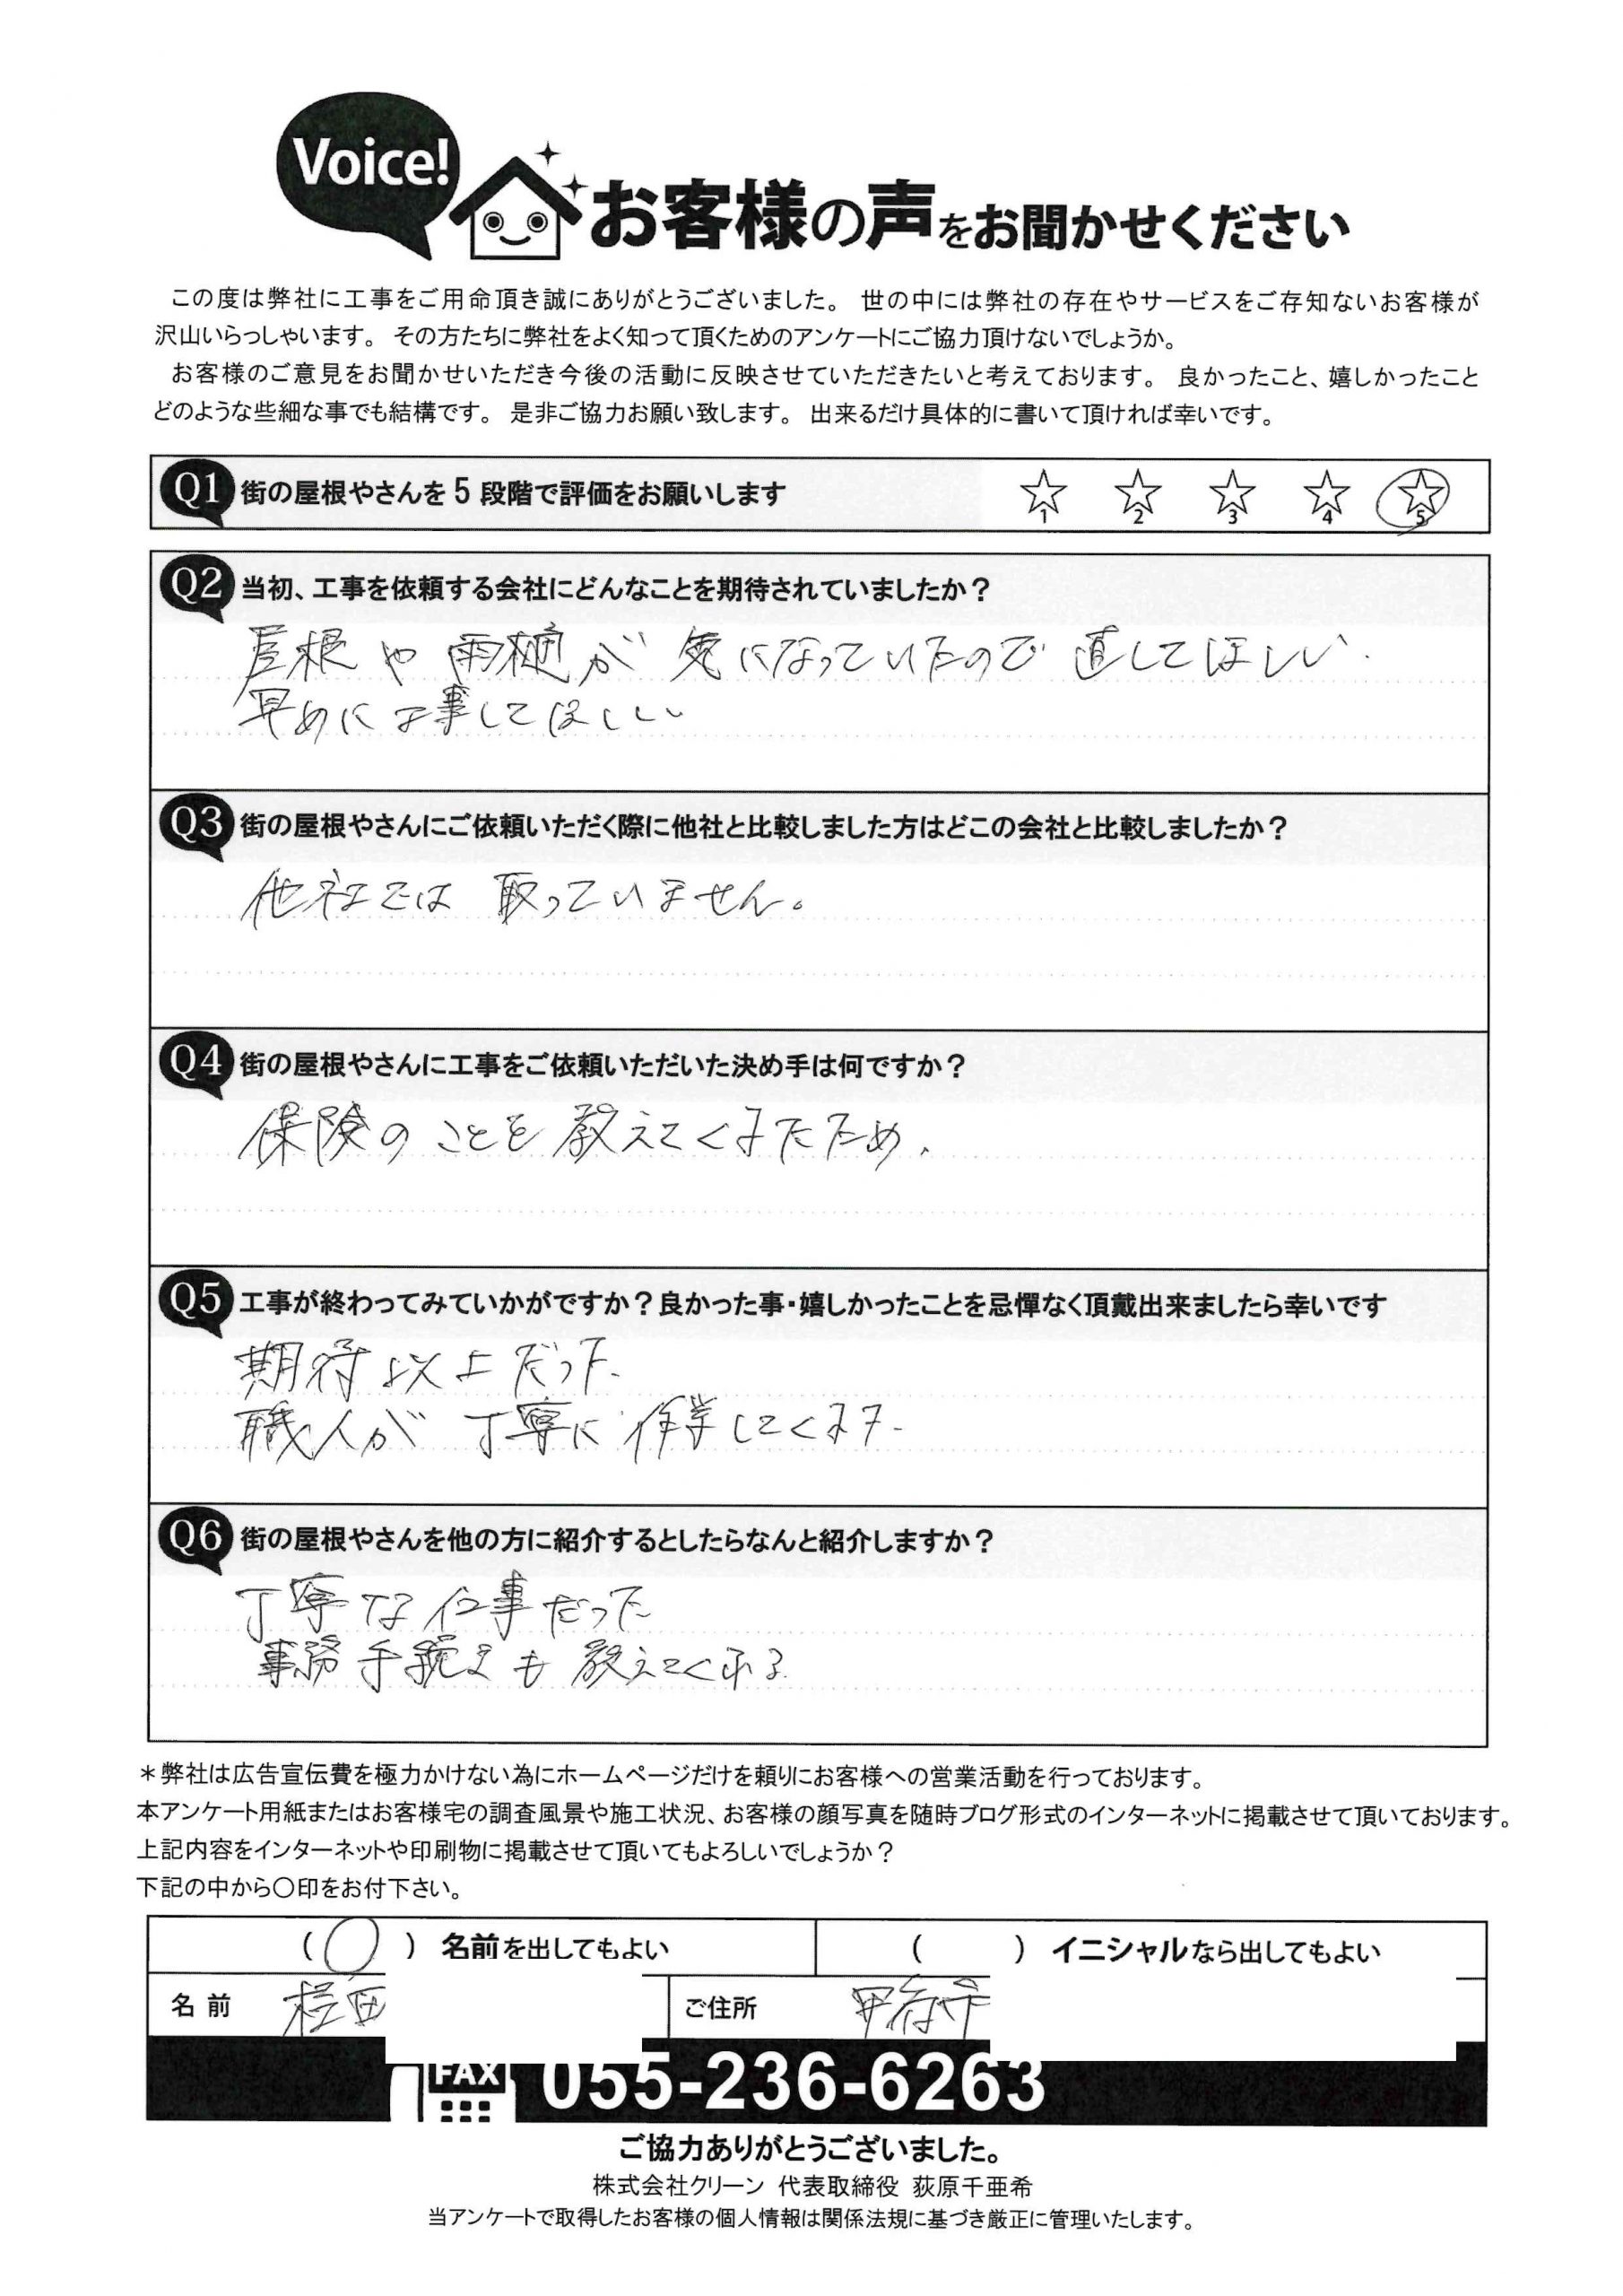 Voice!
お客様の声をお聞かせください
この度は弊社に工事をご用命頂き誠にありがとうございました。 世の中には弊社の存在やサービスをご存知ないお客様が
沢山いらっしゃいます。 その方たちに弊社をよく知って頂くためのアンケートにご協力頂けないでしょうか。
お客様のご意見をお聞かせいただき今後の活動に反映させていただきたいと考えております。 良かったこと、嬉しかったこと
どのような些細な事でも結構です。 是非ご協力お願い致します。 出来るだけ具体的に書いて頂ければ幸いです。
Q1 街の屋根やさんを5段階で評価をお願いします ☆1 ☆2 ☆3 ☆4 ☆5
Q2 当初、工事を依頼する会社にどんなことを期待されていましたか？
屋根や雨樋が気になっていたので直してほしい.
早めに工事してほしい
Q3 街の屋根やさんにご依頼いただく際に他社と比較しました方はどこの会社と比較しましたか？
他社では取っていません。
Q4 街の屋根やさんに工事をご依頼いただいた決め手は何ですか？
保険のことを教えてくれたため、
Q5 工事が終わってみていかがですか？良かった事・嬉しかったことを忌憚なく頂戴出来ましたら幸いです
期待以上だった、
職人が丁寧に作業してくれた
Q6 街の屋根やさんを他の方に紹介するとしたらなんと紹介しますか？
丁寧な仕事だった
事務手続きも教えてくれる
＊弊社は広告宣伝費を極力かけない為にホームページだけを頼りにお客様への営業活動を行っております。
本アンケート用紙またはお客様宅の調査風景や施工状況、お客様の顔写真を随時ブログ形式のインターネットに掲載させて頂いております。
上記内容をインターネットや印刷物に掲載させて頂いてもよろしいでしょうか？
下記の中から〇印をお付下さい。
（〇）名前を出してもよい （ ）イニシャルなら出してもよい
名前 ご住所 甲府市
FAX 055-236-6263
ご協力ありがとうございました。
株式会社クリーン 代表取締役 荻原千亜希
当アンケートで取得したお客様の個人情報は関係法規に基づき厳正に管理いたします。